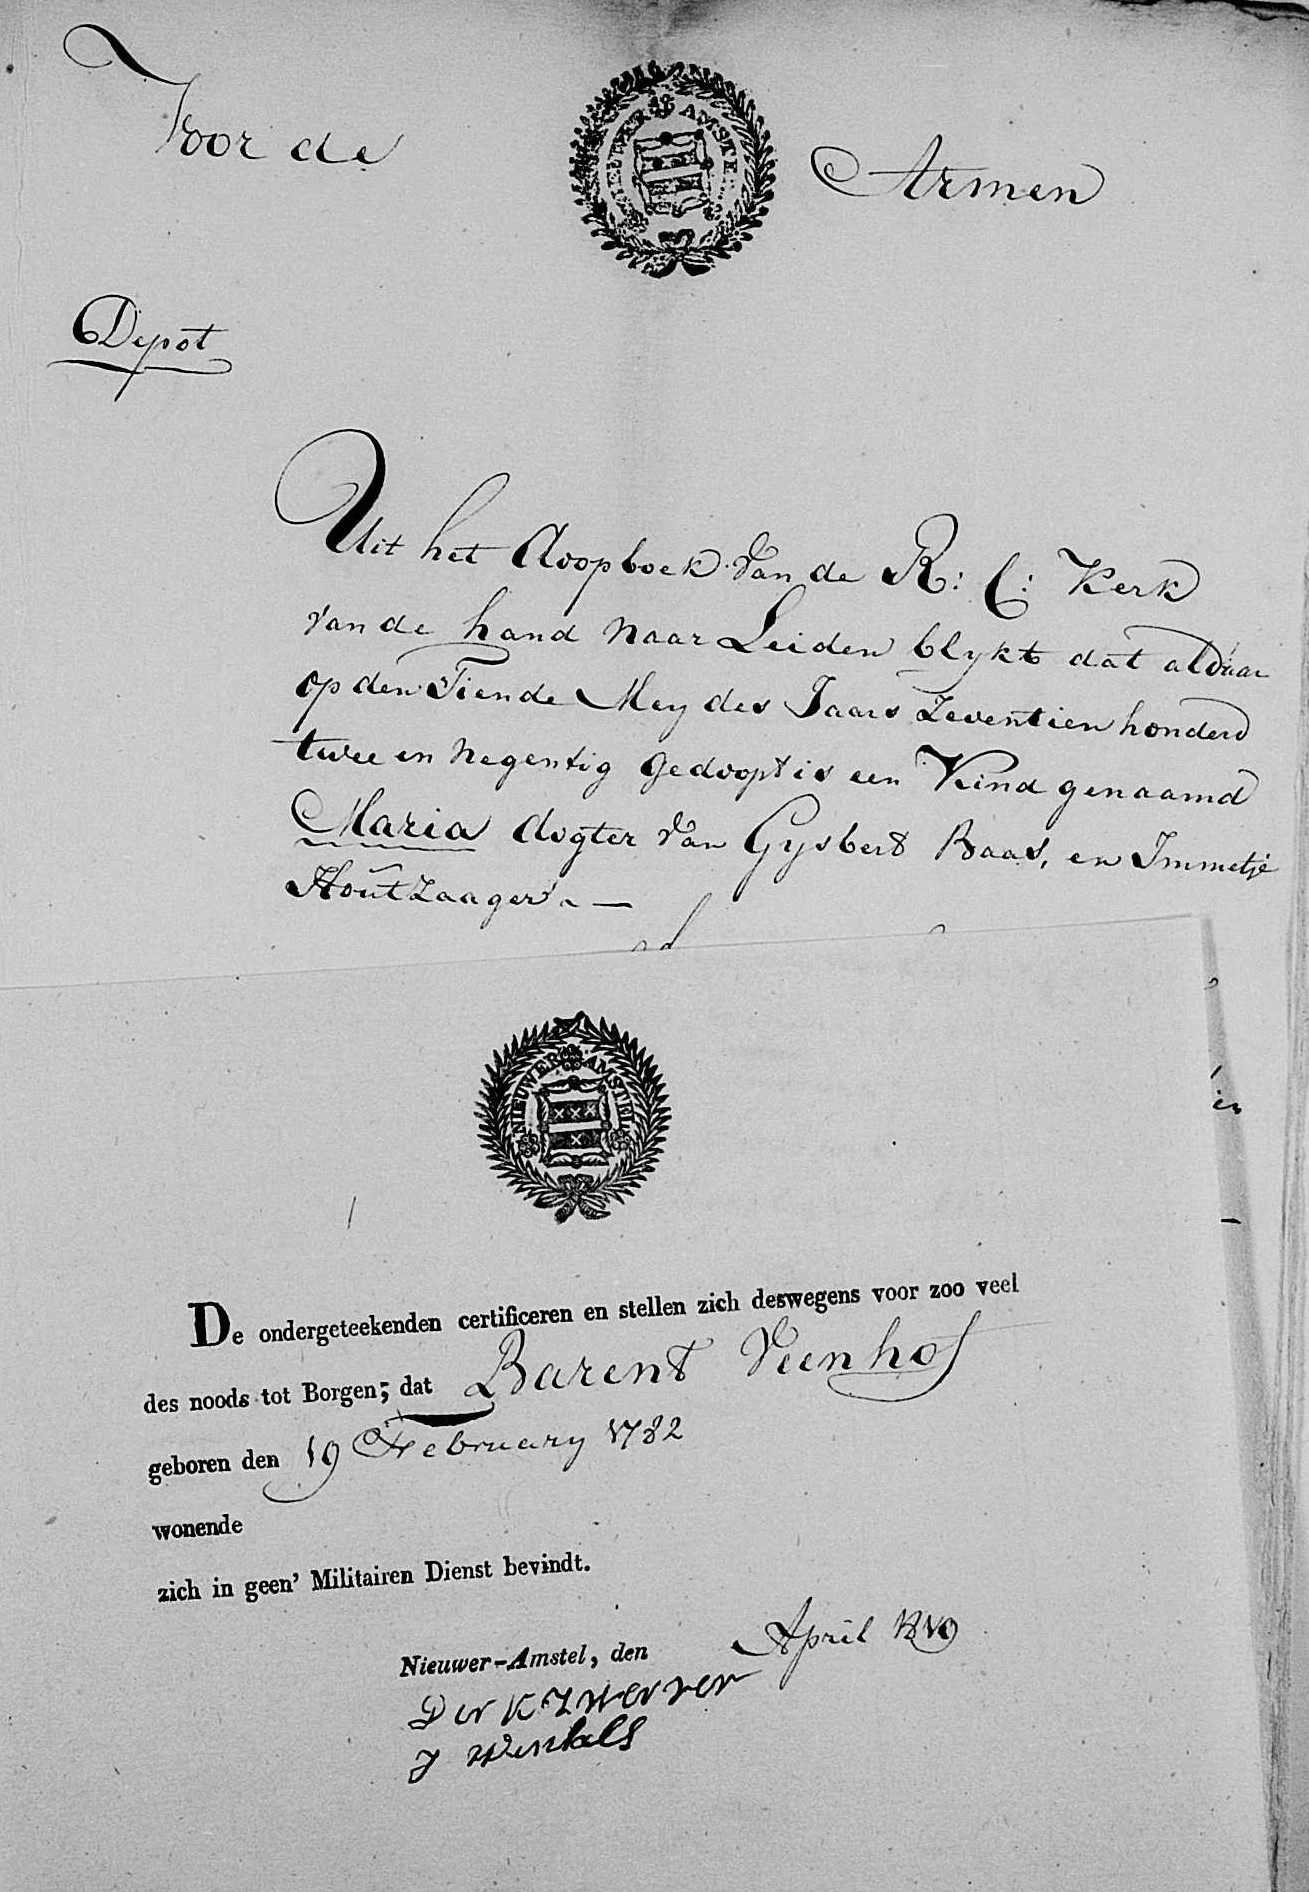 Voor de Armen
NIEUWER AMSTEL
Depot
Uit het doopboek van de R: C: Kerk
van de hand naar Leiden blykt dat aldaar
op den Tiende Mey des Jaars Zeventien honderd
twee en negentig gedoopt is een Kind genaamd
Maria dogter van Gysbert Baas, en Immetje
Houtzaager. —
NIEUWER AMSTEL
De ondergeteekenden certificeren en stellen zich deswegens voor zoo veel
des noods tot Borgen; dat Barent Veenhof
geboren den 19 February 1782
wonende
zich in geen' Militairen Dienst bevindt.
Nieuwer-Amstel, den April 1819
Dirk Zwerver
J Winkels